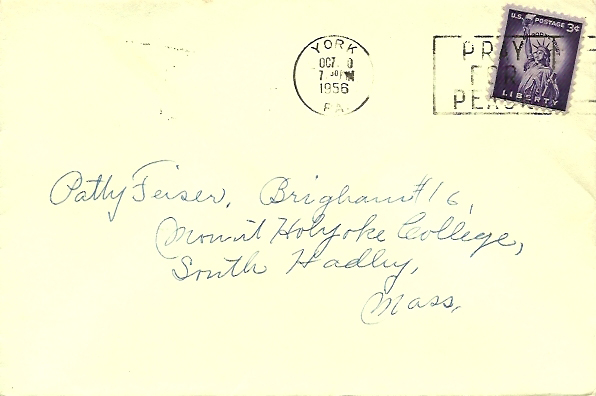 YORK
OCT
7
1956
PA.
PRAY
FOR
PEACE
U.S. POSTAGE 3¢
LIBERTY
Patty Feiser, Brigham #16,
Mount Holyoke College,
South Hadley,
Mass.